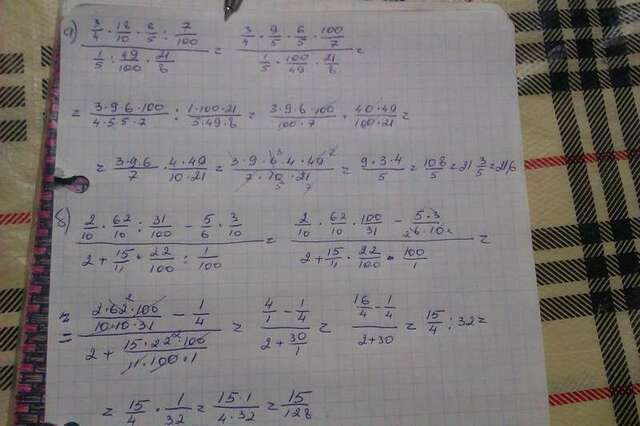 а) (3/4 · 18/10 · 6/5 : 7/100) / (1/5 : 49/100 · 21/8) = (3/4 · 9/5 · 6/5 · 100/7) / (1/5 · 100/49 · 21/8) =
= (3·9·6·100)/(4·5·5·7) : (1·100·21)/(5·49·8) = (3·9·6·100)/(100·7) · (40·49)/(100·21) =
= (3·9·6)/7 · (4·49)/(10·21) = (3·9·6·4·49)/(7·10·21) = (9·3·4)/5 = 108/5 = 21 3/5 = 21,6
б) (2/10 · 62/10 : 31/100 - 5/6 · 3/10) / (2 + 15/11 · 22/100 : 1/100) = (2/10 · 62/10 · 100/31 - (5·3)/(6·10)) / (2 + 15/11 · 22/100 · 100/1) =
= ((2·62·100)/(10·10·31) - 1/4) / (2 + (15·22·100)/(11·100·1)) = (4/1 - 1/4) / (2 + 30/1) = (16/4 - 1/4) / (2+30) = 15/4 : 32 =
= 15/4 · 1/32 = (15·1)/(4·32) = 15/128